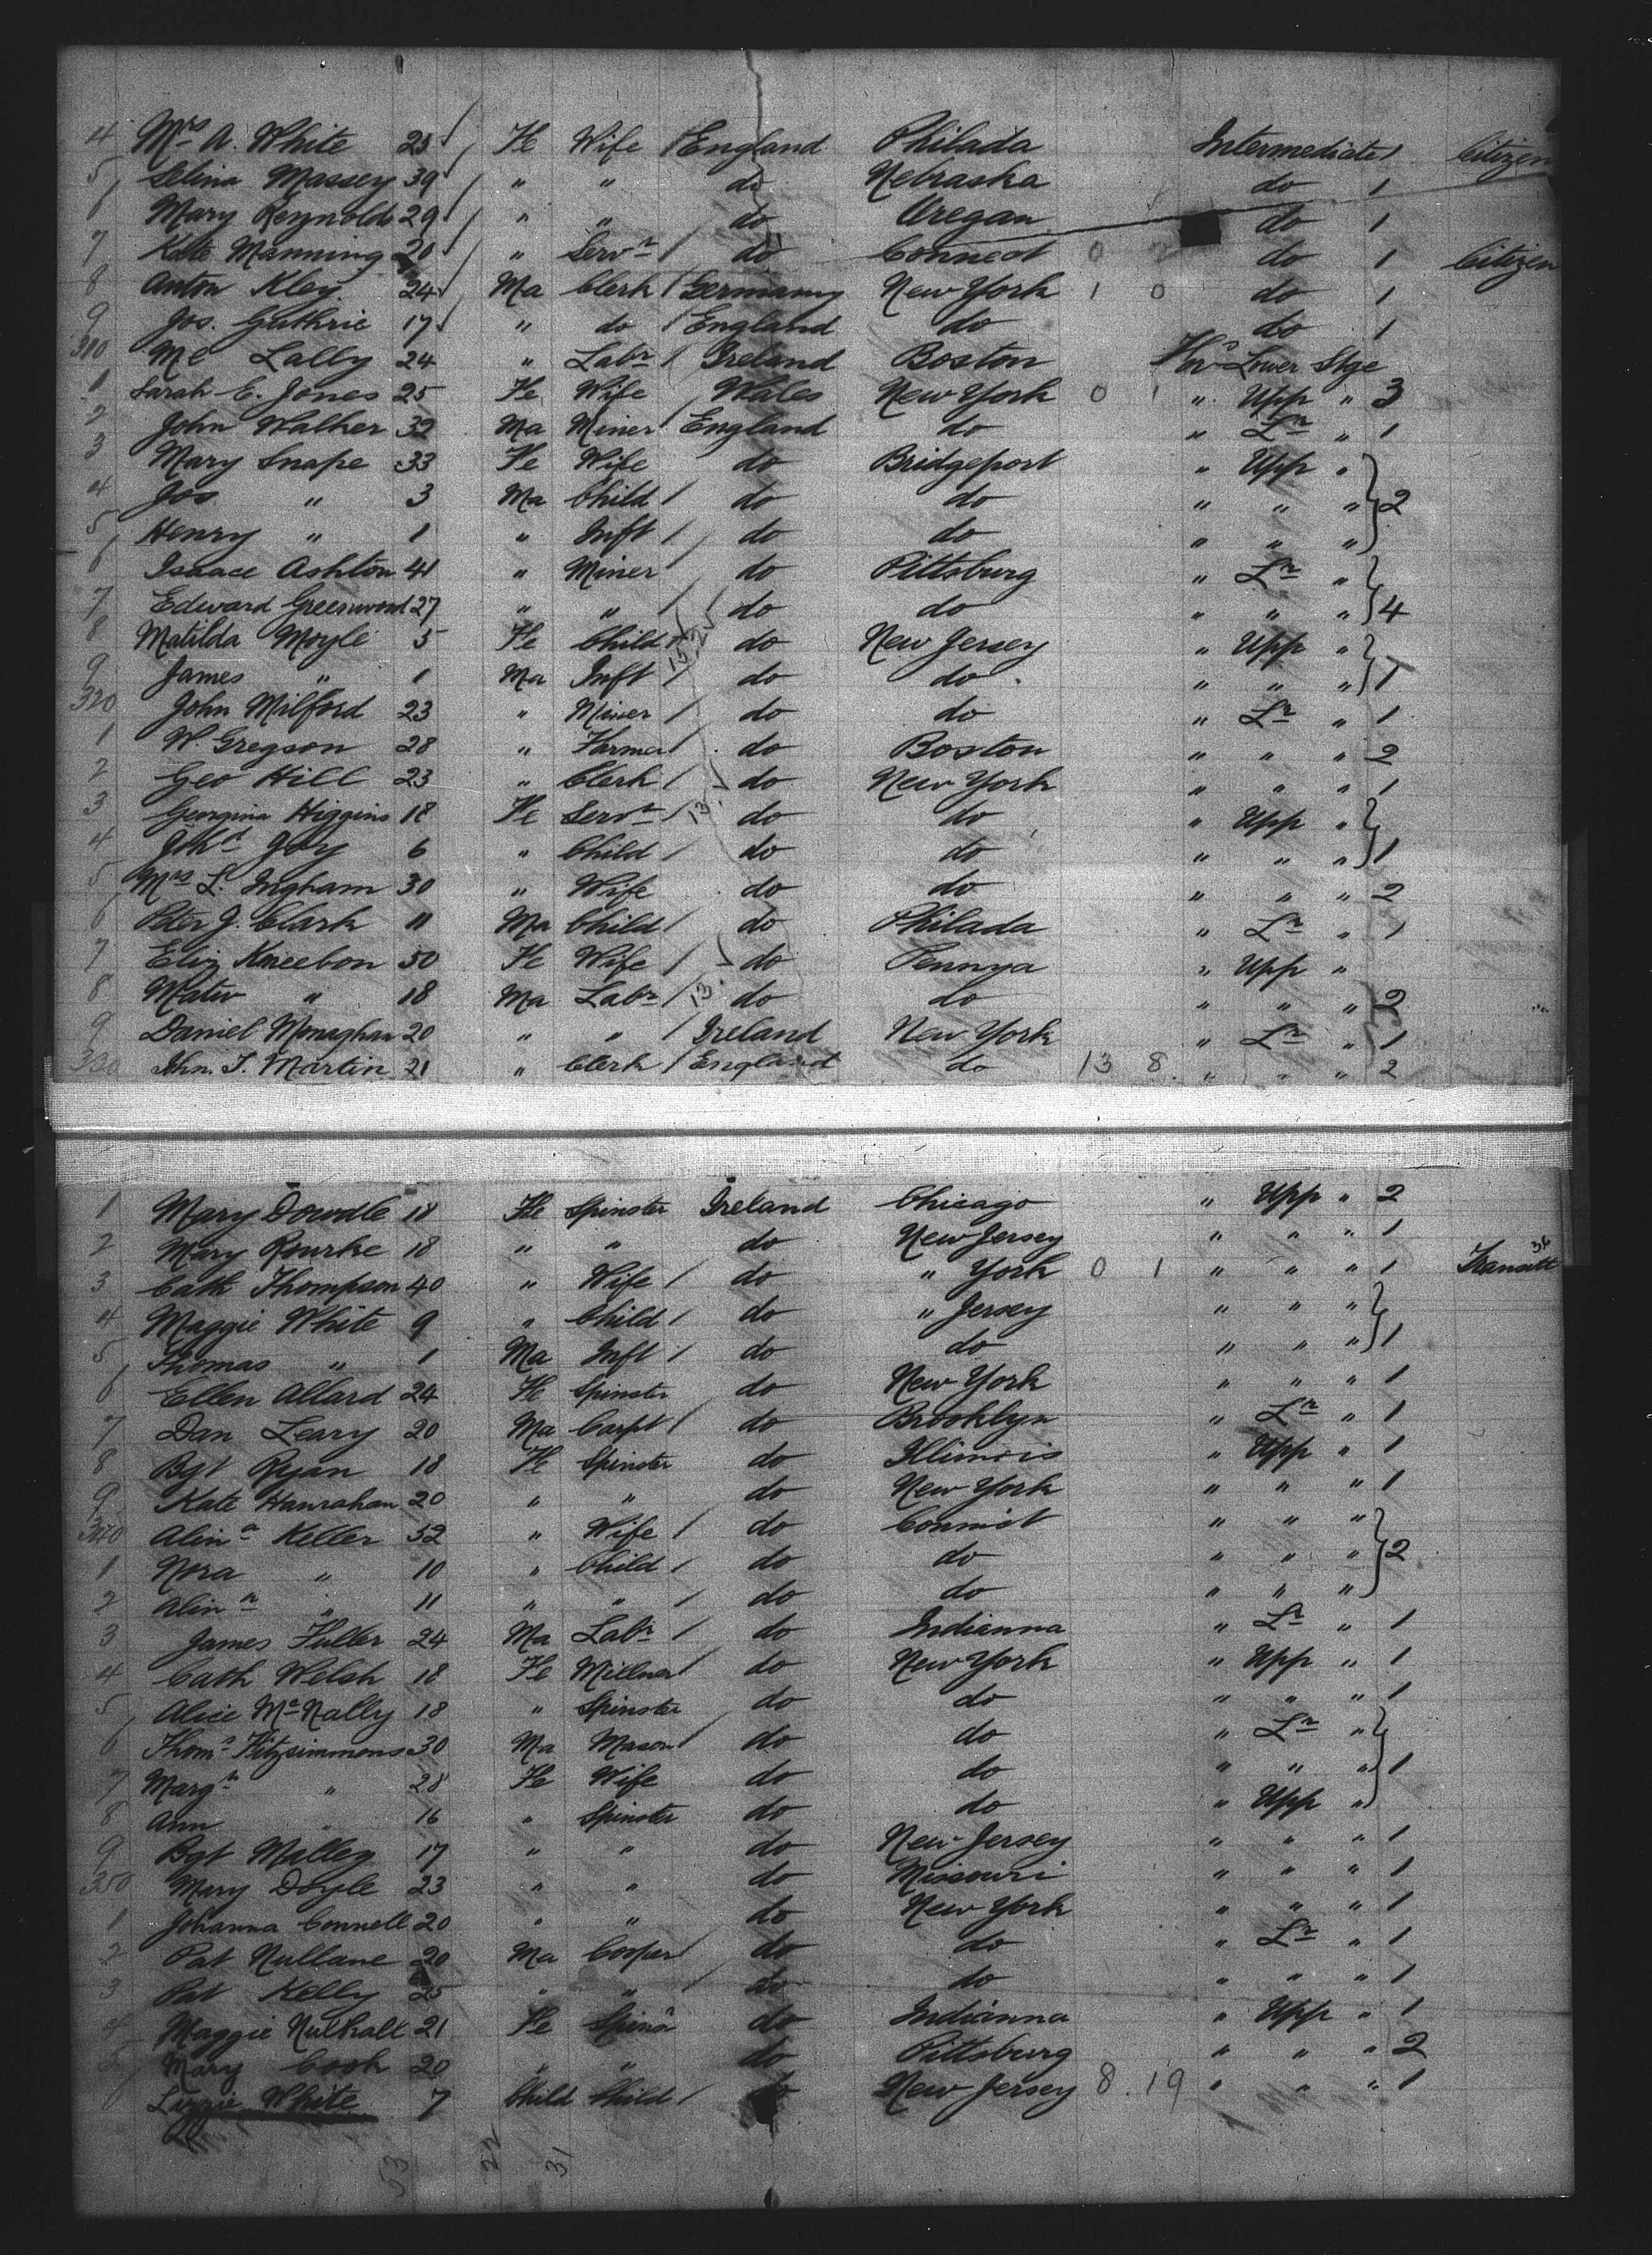 4 Mrs A. White 25 Fe Wife England Philada Intermediate 1 Citizen
5 Selina Massey 39 " " do Nebraska do 1
6 Mary Reynolds 29 " " do Oregan do 1
7 Kate Manning 20 " Servt do Connect 0 2 do 1 Citizen
8 Anton Kley 24 Ma Clerk Germany New York 1 0 do 1
9 Jos. Guthrie 17 " do England do do 1
310 Ml Lally 24 " Labr Ireland Boston Lower Stge
1 Sarah E. Jones 25 Fe Wife Wales New York 0 1 " Upp " 3
2 John Walker 32 Ma Miner England do " Lr " 1
3 Mary Snape 33 Fe Wife do Bridgeport " Upp "
4 Jos " 3 Ma Child do do " " " 2
5 Henry " 1 " Inft do do " " "
6 Isaace Ashton 41 " Miner do Pittsburg " Lr "
7 Edward Greenwood 27 " " do do " " " 4
8 Matilda Moyle 5 Fe Child do New Jersey " Upp "
9 James " 1 Ma Inft do do " " " 1
320 John Milford 23 " Miner do do " Lr " 1
1 W. Gregson 28 " Farmer do Boston " " " 2
2 Geo Hill 23 " Clerk do New York " " " 1
3 Georgina Higgins 18 Fe Servt do do " Upp "
4 Joy 6 " Child do do " " " 1
5 Mrs L. Ingham 30 " Wife do do " " " 2
6 Peter J. Clark 11 Ma Child do Philada " Lr " 1
7 Eliz Kneebon 50 Fe Wife do Pennya " Upp "
8 " 18 Ma Labr do do " " " 2
9 Daniel Monaghan 20 " " Ireland New York " Lr " 1
330 Jhn. T. Martin 21 " Clerk England do 13 8 " " " 2
1 Mary Dowdle 18 Fe Spinster Ireland Chicago " Upp " 2
2 Mary Rourke 18 " " do New Jersey " " " 1
3 Cath Thompson 40 " Wife do " York 0 1 " " " 1 Transitt
4 Maggie White 9 " Child do " Jersey " " "
5 Thomas " 1 Ma Inft do do " " " 1
6 Ellen Allard 24 Fe Spinster do New York " " " 1
7 Dan Leary 20 Ma Carpt do Brooklyn " Lr " 1
8 Bgt Ryan 18 Fe Spinster do Illinois " Upp " 1
9 Kate Hanrahan 20 " " do New York " " " 1
340 Alina Keller 52 " Wife do Connict " " "
1 Nora " 10 " Child do do " " " 2
2 Alina " 11 " " do do " " "
3 James Fuller 24 Ma Labr do Indianna " Lr " 1
4 Cath Welsh 18 Fe Millner do New York " Upp " 1
5 Alice McNally 18 " Spinster do do " " " 1
6 Thoms Fitzsimmons 30 Ma Mason do do " Lr "
7 Margt " 28 Fe Wife do do " " " 1
8 Ann " 16 " Spinster do do " Upp "
9 Bgt Malley 17 " " do New Jersey " " " 1
350 Mary Doyle 23 " " do Missouri " " " 1
1 Johanna Connell 20 " " do New York " " " 1
2 Pat Nullane 20 Ma Cooper do do " Lr " 1
3 Pat Kelly 25 " " do do " " " 1
4 Maggie Nulhall 21 Fe do Indianna " Upp " 1
5 Mary Cook 20 " " do Pittsburg " " " 2
6 Lizzie White 7 Child Child do New Jersey 8 . 19 " " " 1
53 22 31